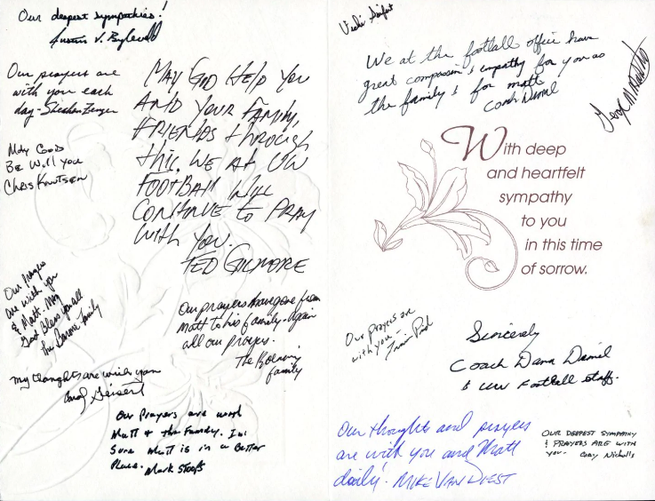 Our deepest sympathies!
Our prayers are
with you each
day -
May God
Be Will you
Chris Knutsen
MAY GOD HELP YOU
AND YOUR FAMILY,
FRIENDS through
this. WE AT UW
FOOTBALL WILL
CONTINUE to PRAY
WITH YOU.
TED GILMORE
Our Prayers
are with you
& Matt. May
God Bless you all
The Family
Our prayers have gone from
Matt to his family. Again
all our prayers.
The
family
My thoughts are with you
Our Prayers are with
Matt & the Family. I'm
Sure Matt is in a Better
Place. Mark Stoops
We at the football office have
great compassion & empathy for you as
the family & for Matt
Coach Daniel
With deep
and heartfelt
sympathy
to you
in this time
of sorrow.
Our Prayers are
with you -
Sincerely
Coach Dana Daniel
& UW Football staff.
Our thoughts and prayers
are with you and Matt
daily! MIKE VAN DIEST
OUR DEEPEST SYMPATHY
& PRAYERS ARE WITH
YOU - Cory Nicholls